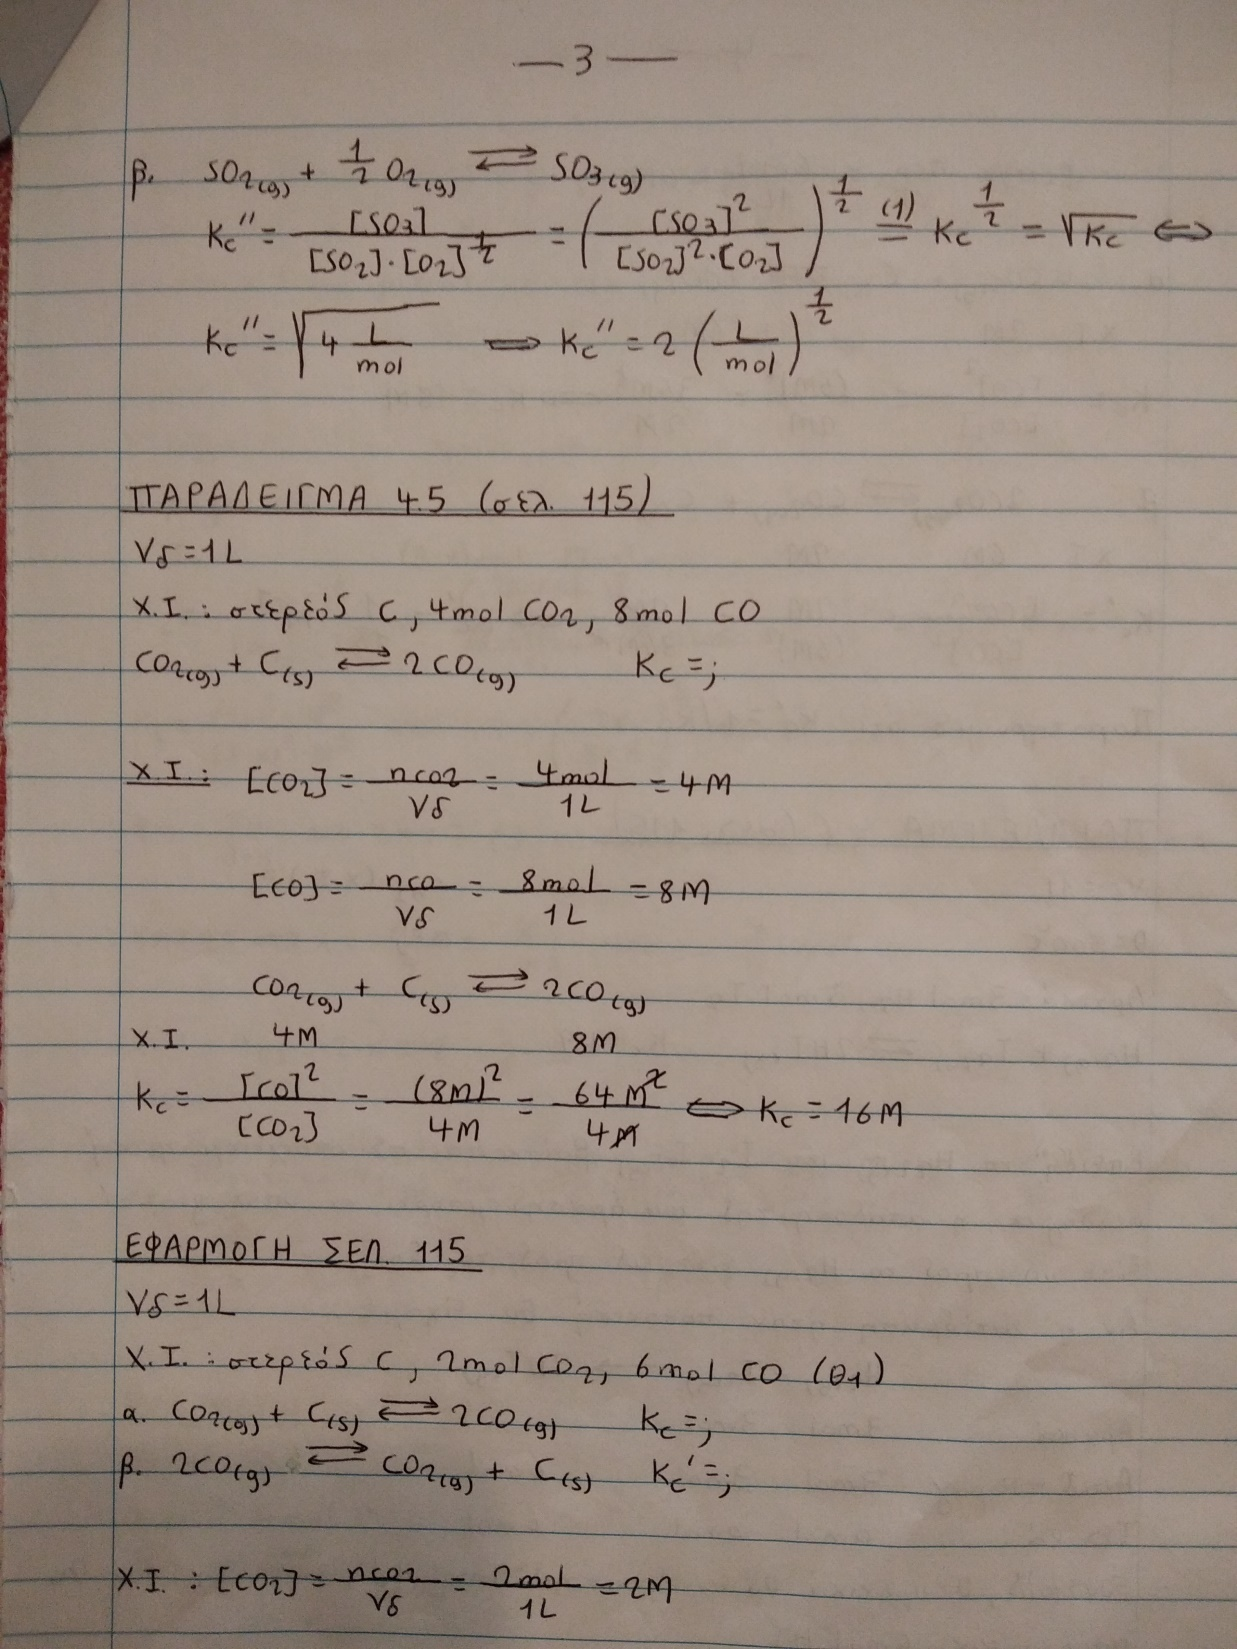 — 3 —
β. SO2(g) + 1/2 O2(g) ⇌ SO3(g)
Kc'' = [SO3] / [SO2]·[O2]^1/2 = ([SO3]^2 / [SO2]^2·[O2])^1/2 =(1) Kc^1/2 = √Kc ⇔
Kc'' = √(4 L/mol) ⇔ Kc'' = 2 (L/mol)^1/2
ΠΑΡΑΔΕΙΓΜΑ 4.5 (σελ. 115)
Vδ = 1L
Χ.Ι. : στερεός C, 4mol CO2, 8mol CO
CO2(g) + C(s) ⇌ 2CO(g) Kc =;
Χ.Ι.: [CO2] = nCO2/Vδ = 4mol/1L = 4M
[CO] = nCO/Vδ = 8mol/1L = 8M
CO2(g) + C(s) ⇌ 2CO(g)
Χ.Ι. 4M 8M
Kc = [CO]^2/[CO2] = (8M)^2/4M = 64M^2/4M ⇔ Kc = 16M
ΕΦΑΡΜΟΓΗ ΣΕΛ. 115
Vδ = 1L
Χ.Ι. : στερεός C, 2mol CO2, 6mol CO (θ1)
α. CO2(g) + C(s) ⇌ 2CO(g) Kc =;
β. 2CO(g) ⇌ CO2(g) + C(s) Kc' =;
Χ.Ι. : [CO2] = nCO2/Vδ = 2mol/1L = 2M